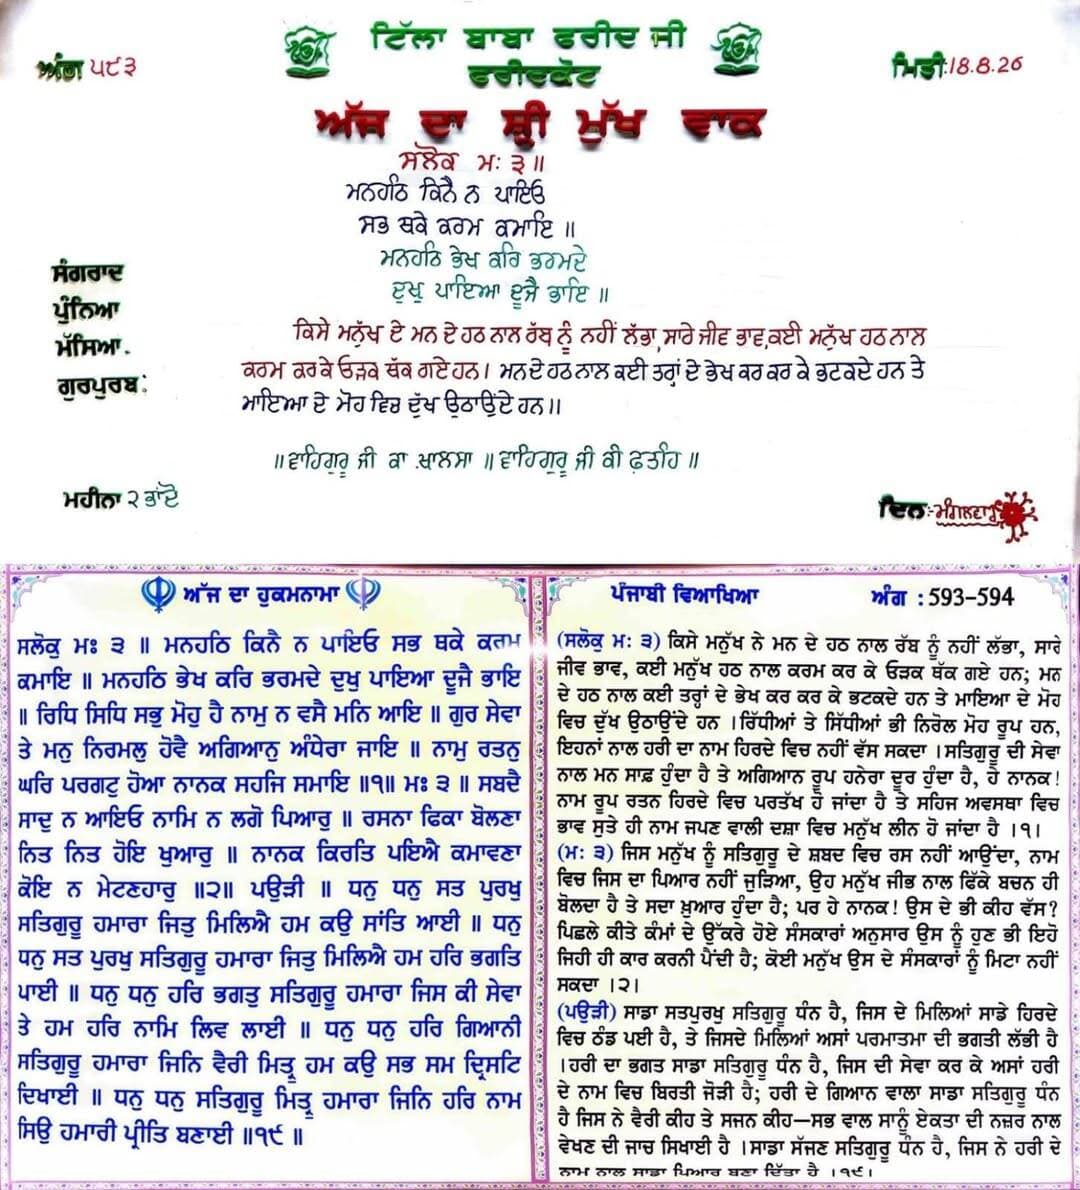 ਅੰਗ ੫੯੩
ਟਿੱਲਾ ਬਾਬਾ ਫਰੀਦ ਜੀ
ਫਰੀਦਕੋਟ
ਮਿਤੀ:18.8.26
ਅੱਜ ਦਾ ਸ਼੍ਰੀ ਮੁੱਖ ਵਾਕ
ਸਲੋਕ ਮਃ ੩॥
ਮਨਹਠਿ ਕਿਨੈ ਨ ਪਾਇਓ
ਸਭ ਥਕੇ ਕਰਮ ਕਮਾਇ ॥
ਮਨਹਠਿ ਭੇਖ ਕਰਿ ਭਰਮਦੇ
ਦੁਖੁ ਪਾਇਆ ਦੂਜੈ ਭਾਇ ॥
ਸੰਗਰਾਦ
ਪੁੰਨਿਆ
ਮੱਸਿਆ.
ਗੁਰਪੁਰਬ:
ਕਿਸੇ ਮਨੁੱਖ ਦੇ ਮਨ ਦੇ ਹਠ ਨਾਲ ਰੱਬ ਨੂੰ ਨਹੀਂ ਲੱਭਾ,ਸਾਰੇ ਜੀਵ ਭਾਵ,ਕਈ ਮਨੁੱਖ ਹਠ ਨਾਲ
ਕਰਮ ਕਰਕੇ ਓੜਕ ਥੱਕ ਗਏ ਹਨ। ਮਨ ਦੇ ਹਠ ਨਾਲ ਕਈ ਤਰ੍ਹਾਂ ਦੇ ਭੇਖ ਕਰ ਕਰ ਕੇ ਭਟਕਦੇ ਹਨ ਤੇ
ਮਾਇਆ ਦੇ ਮੋਹ ਵਿਚ ਦੁੱਖ ਉਠਾਉਂਦੇ ਹਨ॥
॥ਵਾਹਿਗੁਰੂ ਜੀ ਕਾ ਖ਼ਾਲਸਾ ॥ ਵਾਹਿਗੁਰੂ ਜੀ ਕੀ ਫ਼ਤਹਿ ॥
ਮਹੀਨਾ ੨ ਭਾਦੋਂ
ਦਿਨ:-ਮੰਗਲਵਾਰ
ਅੱਜ ਦਾ ਹੁਕਮਨਾਮਾ
ਸਲੋਕੁ ਮਃ ੩ ॥ ਮਨਹਠਿ ਕਿਨੈ ਨ ਪਾਇਓ ਸਭ ਥਕੇ ਕਰਮ
ਕਮਾਇ ॥ ਮਨਹਠਿ ਭੇਖ ਕਰਿ ਭਰਮਦੇ ਦੁਖੁ ਪਾਇਆ ਦੂਜੈ ਭਾਇ
॥ ਰਿਧਿ ਸਿਧਿ ਸਭੁ ਮੋਹੁ ਹੈ ਨਾਮੁ ਨ ਵਸੈ ਮਨਿ ਆਇ ॥ ਗੁਰ ਸੇਵਾ
ਤੇ ਮਨੁ ਨਿਰਮਲੁ ਹੋਵੈ ਅਗਿਆਨੁ ਅੰਧੇਰਾ ਜਾਇ ॥ ਨਾਮੁ ਰਤਨੁ
ਘਰਿ ਪਰਗਟੁ ਹੋਆ ਨਾਨਕ ਸਹਜਿ ਸਮਾਇ ॥੧॥ ਮਃ ੩ ॥ ਸਬਦੈ
ਸਾਦੁ ਨ ਆਇਓ ਨਾਮਿ ਨ ਲਗੋ ਪਿਆਰੁ ॥ ਰਸਨਾ ਫਿਕਾ ਬੋਲਣਾ
ਨਿਤ ਨਿਤ ਹੋਇ ਖੁਆਰੁ ॥ ਨਾਨਕ ਕਿਰਤਿ ਪਇਐ ਕਮਾਵਣਾ
ਕੋਇ ਨ ਮੇਟਣਹਾਰੁ ॥੨॥ ਪਉੜੀ ॥ ਧਨੁ ਧਨੁ ਸਤ ਪੁਰਖੁ
ਸਤਿਗੁਰੂ ਹਮਾਰਾ ਜਿਤੁ ਮਿਲਿਐ ਹਮ ਕਉ ਸਾਂਤਿ ਆਈ ॥ ਧਨੁ
ਧਨੁ ਸਤ ਪੁਰਖੁ ਸਤਿਗੁਰੂ ਹਮਾਰਾ ਜਿਤੁ ਮਿਲਿਐ ਹਮ ਹਰਿ ਭਗਤਿ
ਪਾਈ ॥ ਧਨੁ ਧਨੁ ਹਰਿ ਭਗਤੁ ਸਤਿਗੁਰੂ ਹਮਾਰਾ ਜਿਸ ਕੀ ਸੇਵਾ
ਤੇ ਹਮ ਹਰਿ ਨਾਮਿ ਲਿਵ ਲਾਈ ॥ ਧਨੁ ਧਨੁ ਹਰਿ ਗਿਆਨੀ
ਸਤਿਗੁਰੂ ਹਮਾਰਾ ਜਿਨਿ ਵੈਰੀ ਮਿਤ੍ਰੁ ਹਮ ਕਉ ਸਭ ਸਮ ਦ੍ਰਿਸਟਿ
ਦਿਖਾਈ ॥ ਧਨੁ ਧਨੁ ਸਤਿਗੁਰੂ ਮਿਤ੍ਰੁ ਹਮਾਰਾ ਜਿਨਿ ਹਰਿ ਨਾਮ
ਸਿਉ ਹਮਾਰੀ ਪ੍ਰੀਤਿ ਬਣਾਈ ॥੧੯॥
ਪੰਜਾਬੀ ਵਿਆਖਿਆ
ਅੰਗ : 593-594
(ਸਲੋਕੁ ਮਃ ੩) ਕਿਸੇ ਮਨੁੱਖ ਨੇ ਮਨ ਦੇ ਹਠ ਨਾਲ ਰੱਬ ਨੂੰ ਨਹੀਂ ਲੱਭਾ, ਸਾਰੇ
ਜੀਵ ਭਾਵ, ਕਈ ਮਨੁੱਖ ਹਠ ਨਾਲ ਕਰਮ ਕਰ ਕੇ ਓੜਕ ਥੱਕ ਗਏ ਹਨ; ਮਨ
ਦੇ ਹਠ ਨਾਲ ਕਈ ਤਰ੍ਹਾਂ ਦੇ ਭੇਖ ਕਰ ਕਰ ਕੇ ਭਟਕਦੇ ਹਨ ਤੇ ਮਾਇਆ ਦੇ ਮੋਹ
ਵਿਚ ਦੁੱਖ ਉਠਾਉਂਦੇ ਹਨ ।ਰਿੱਧੀਆਂ ਤੇ ਸਿੱਧੀਆਂ ਭੀ ਨਿਰੋਲ ਮੋਹ ਰੂਪ ਹਨ,
ਇਹਨਾਂ ਨਾਲ ਹਰੀ ਦਾ ਨਾਮ ਹਿਰਦੇ ਵਿਚ ਨਹੀਂ ਵੱਸ ਸਕਦਾ ।ਸਤਿਗੁਰੂ ਦੀ ਸੇਵਾ
ਨਾਲ ਮਨ ਸਾਫ਼ ਹੁੰਦਾ ਹੈ ਤੇ ਅਗਿਆਨ ਰੂਪ ਹਨੇਰਾ ਦੂਰ ਹੁੰਦਾ ਹੈ, ਹੇ ਨਾਨਕ!
ਨਾਮ ਰੂਪ ਰਤਨ ਹਿਰਦੇ ਵਿਚ ਪਰਤੱਖ ਹੋ ਜਾਂਦਾ ਹੈ ਤੇ ਸਹਿਜ ਅਵਸਥਾ ਵਿਚ
ਭਾਵ ਸੁਤੇ ਹੀ ਨਾਮ ਜਪਣ ਵਾਲੀ ਦਸ਼ਾ ਵਿਚ ਮਨੁੱਖ ਲੀਨ ਹੋ ਜਾਂਦਾ ਹੈ ।੧।
(ਮਃ ੩) ਜਿਸ ਮਨੁੱਖ ਨੂੰ ਸਤਿਗੁਰੂ ਦੇ ਸ਼ਬਦ ਵਿਚ ਰਸ ਨਹੀਂ ਆਉਂਦਾ, ਨਾਮ
ਵਿਚ ਜਿਸ ਦਾ ਪਿਆਰ ਨਹੀਂ ਜੁੜਿਆ, ਉਹ ਮਨੁੱਖ ਜੀਭ ਨਾਲ ਫਿੱਕੇ ਬਚਨ ਹੀ
ਬੋਲਦਾ ਹੈ ਤੇ ਸਦਾ ਖ਼ੁਆਰ ਹੁੰਦਾ ਹੈ; ਪਰ ਹੇ ਨਾਨਕ! ਉਸ ਦੇ ਭੀ ਕੀਹ ਵੱਸ?
ਪਿਛਲੇ ਕੀਤੇ ਕੰਮਾਂ ਦੇ ਉੱਕਰੇ ਹੋਏ ਸੰਸਕਾਰਾਂ ਅਨੁਸਾਰ ਉਸ ਨੂੰ ਹੁਣ ਭੀ ਇਹੋ
ਜਿਹੀ ਹੀ ਕਾਰ ਕਰਨੀ ਪੈਂਦੀ ਹੈ; ਕੋਈ ਮਨੁੱਖ ਉਸ ਦੇ ਸੰਸਕਾਰਾਂ ਨੂੰ ਮਿਟਾ ਨਹੀਂ
ਸਕਦਾ ।੨।
(ਪਉੜੀ) ਸਾਡਾ ਸਤਪੁਰਖੁ ਸਤਿਗੁਰੂ ਧੰਨ ਹੈ, ਜਿਸ ਦੇ ਮਿਲਿਆਂ ਸਾਡੇ ਹਿਰਦੇ
ਵਿਚ ਠੰਡ ਪਈ ਹੈ, ਤੇ ਜਿਸਦੇ ਮਿਲਿਆਂ ਅਸਾਂ ਪਰਮਾਤਮਾ ਦੀ ਭਗਤੀ ਲੱਭੀ ਹੈ
।ਹਰੀ ਦਾ ਭਗਤ ਸਾਡਾ ਸਤਿਗੁਰੂ ਧੰਨ ਹੈ, ਜਿਸ ਦੀ ਸੇਵਾ ਕਰ ਕੇ ਅਸਾਂ ਹਰੀ
ਦੇ ਨਾਮ ਵਿਚ ਬਿਰਤੀ ਜੋੜੀ ਹੈ; ਹਰੀ ਦੇ ਗਿਆਨ ਵਾਲਾ ਸਾਡਾ ਸਤਿਗੁਰੂ ਧੰਨ
ਹੈ ਜਿਸ ਨੇ ਵੈਰੀ ਕੀਹ ਤੇ ਸਜਨ ਕੀਹ—ਸਭ ਵਾਲ ਸਾਨੂੰ ਏਕਤਾ ਦੀ ਨਜ਼ਰ ਨਾਲ
ਵੇਖਣ ਦੀ ਜਾਚ ਸਿਖਾਈ ਹੈ ।ਸਾਡਾ ਸੱਜਣ ਸਤਿਗੁਰੂ ਧੰਨ ਹੈ, ਜਿਸ ਨੇ ਹਰੀ ਦੇ
ਨਾਮ ਨਾਲ ਸਾਡਾ ਪਿਆਰ ਬਣਾ ਦਿੱਤਾ ਹੈ ।੧੯।